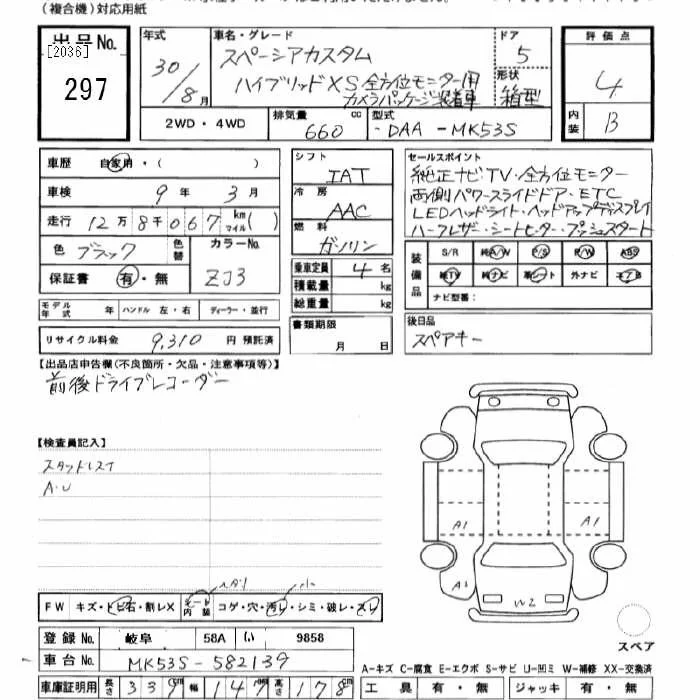 (複合機)対応用紙
出品No. [2036] 297
年式 30/8月
車名・グレード スペーシアカスタム
ハイブリッドXS 全方位モニター用
カメラパッケージ装着車
ドア 5
形状 箱型
評価点 4
内装 B
2WD・4WD 排気量 660 cc 型式 -DAA-MK53S
車歴 自家用・( )
車検 9年 3月
走行 12万8千067 km マイル( )
色 ブラック 色替 カラーNo. ZJ3
保証書 有・無
モデル年式 年 ハンドル 左・右 ディーラー・並行
リサイクル料金 9,310 円 預託済
シフト IAT
冷房 AAC
燃料 ガソリン
乗車定員 4 名
積載量 kg
総重量 kg
書類期限 月 日
セールスポイント
純正ナビTV・全方位モニター
両側パワースライドドア・ETC
LEDヘッドライト・ヘッドアップディスプレイ
ハーフレザー・シートヒーター・プッシュスタート
装備品 S/R 純A/W P/S P/W ABS
純TV 純ナビ 革シート 外ナビ エアB
ナビ型番:
後日品
スペアキー
【出品店申告欄(不良箇所・欠品・注意事項等)】
前後ドライブレコーダー
【検査員記入】
スタッドレス
A・U
A1 A1
A1 W2
スペア
FW キズ・トビ石・割レX シート内装 コゲ・穴・汚レ・シミ・破レ・スレ
登録No. 岐阜 58A い 9858
車台No. MK53S-582139
車庫証明用 長さ 339cm 幅 147cm 高さ 178cm
A-キズ C-腐食 E-エクボ S-サビ U-凹ミ W-補修 XX-交換済
工具 有・無 ジャッキ 有・無